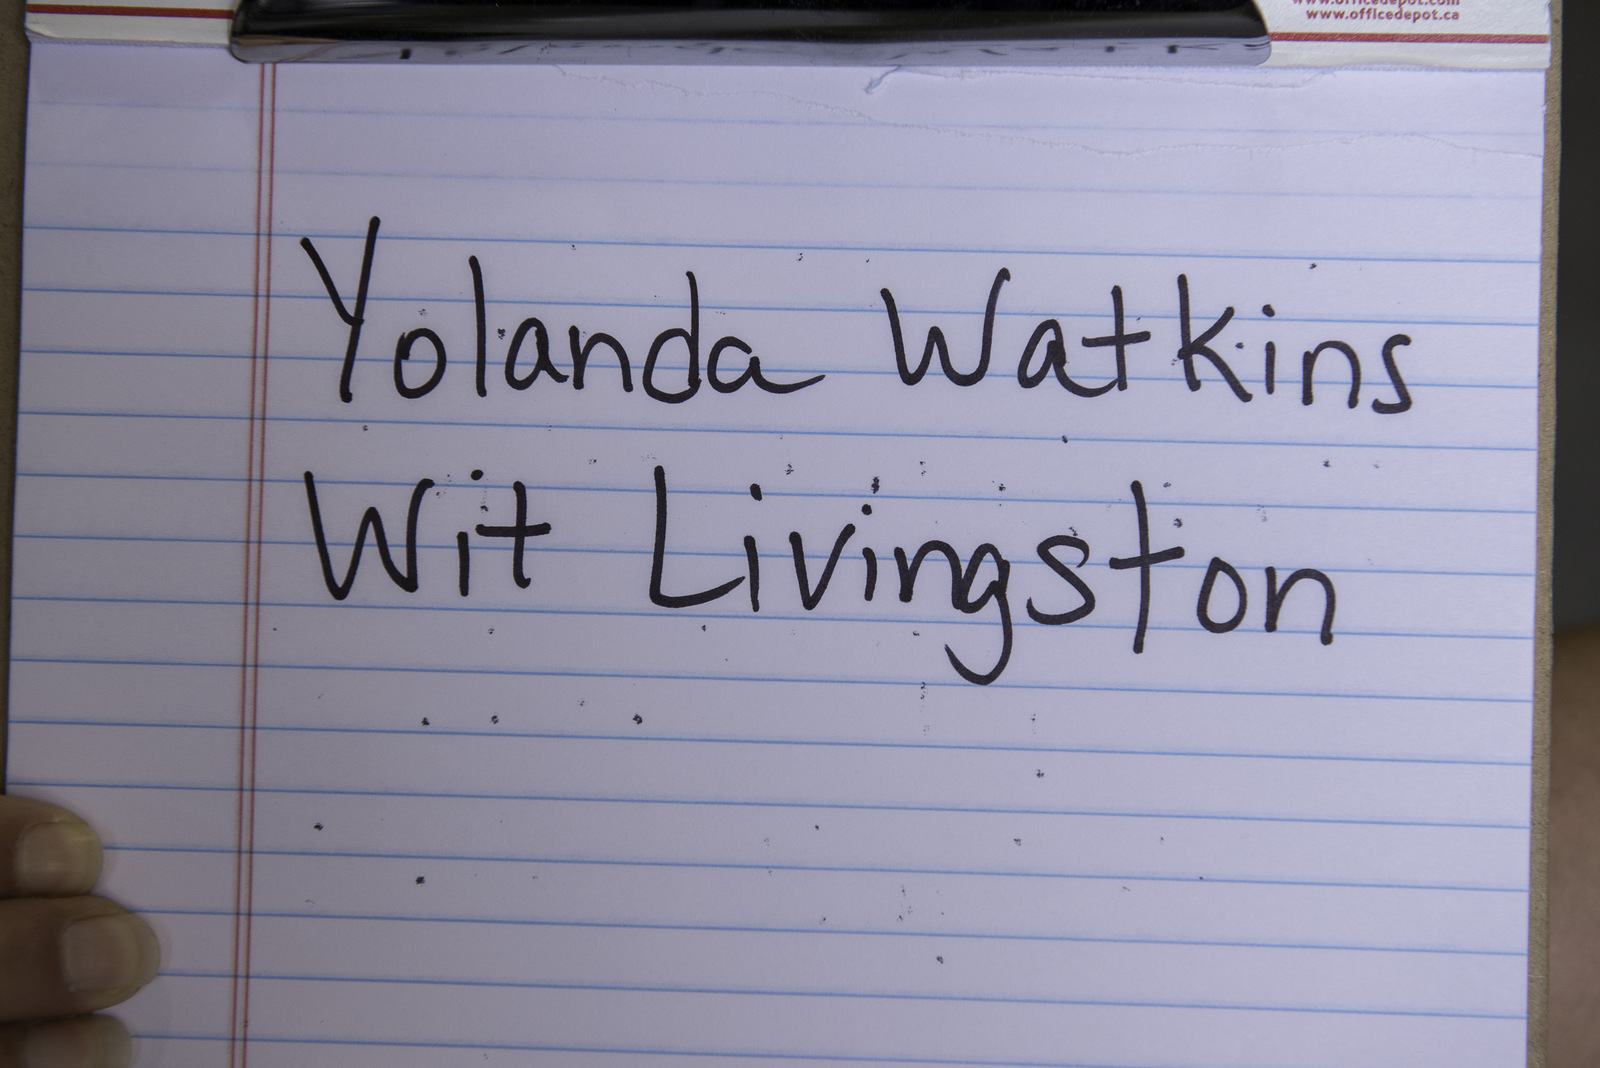 www.officedepot.com
www.officedepot.ca
Yolanda Watkins
Wit Livingston